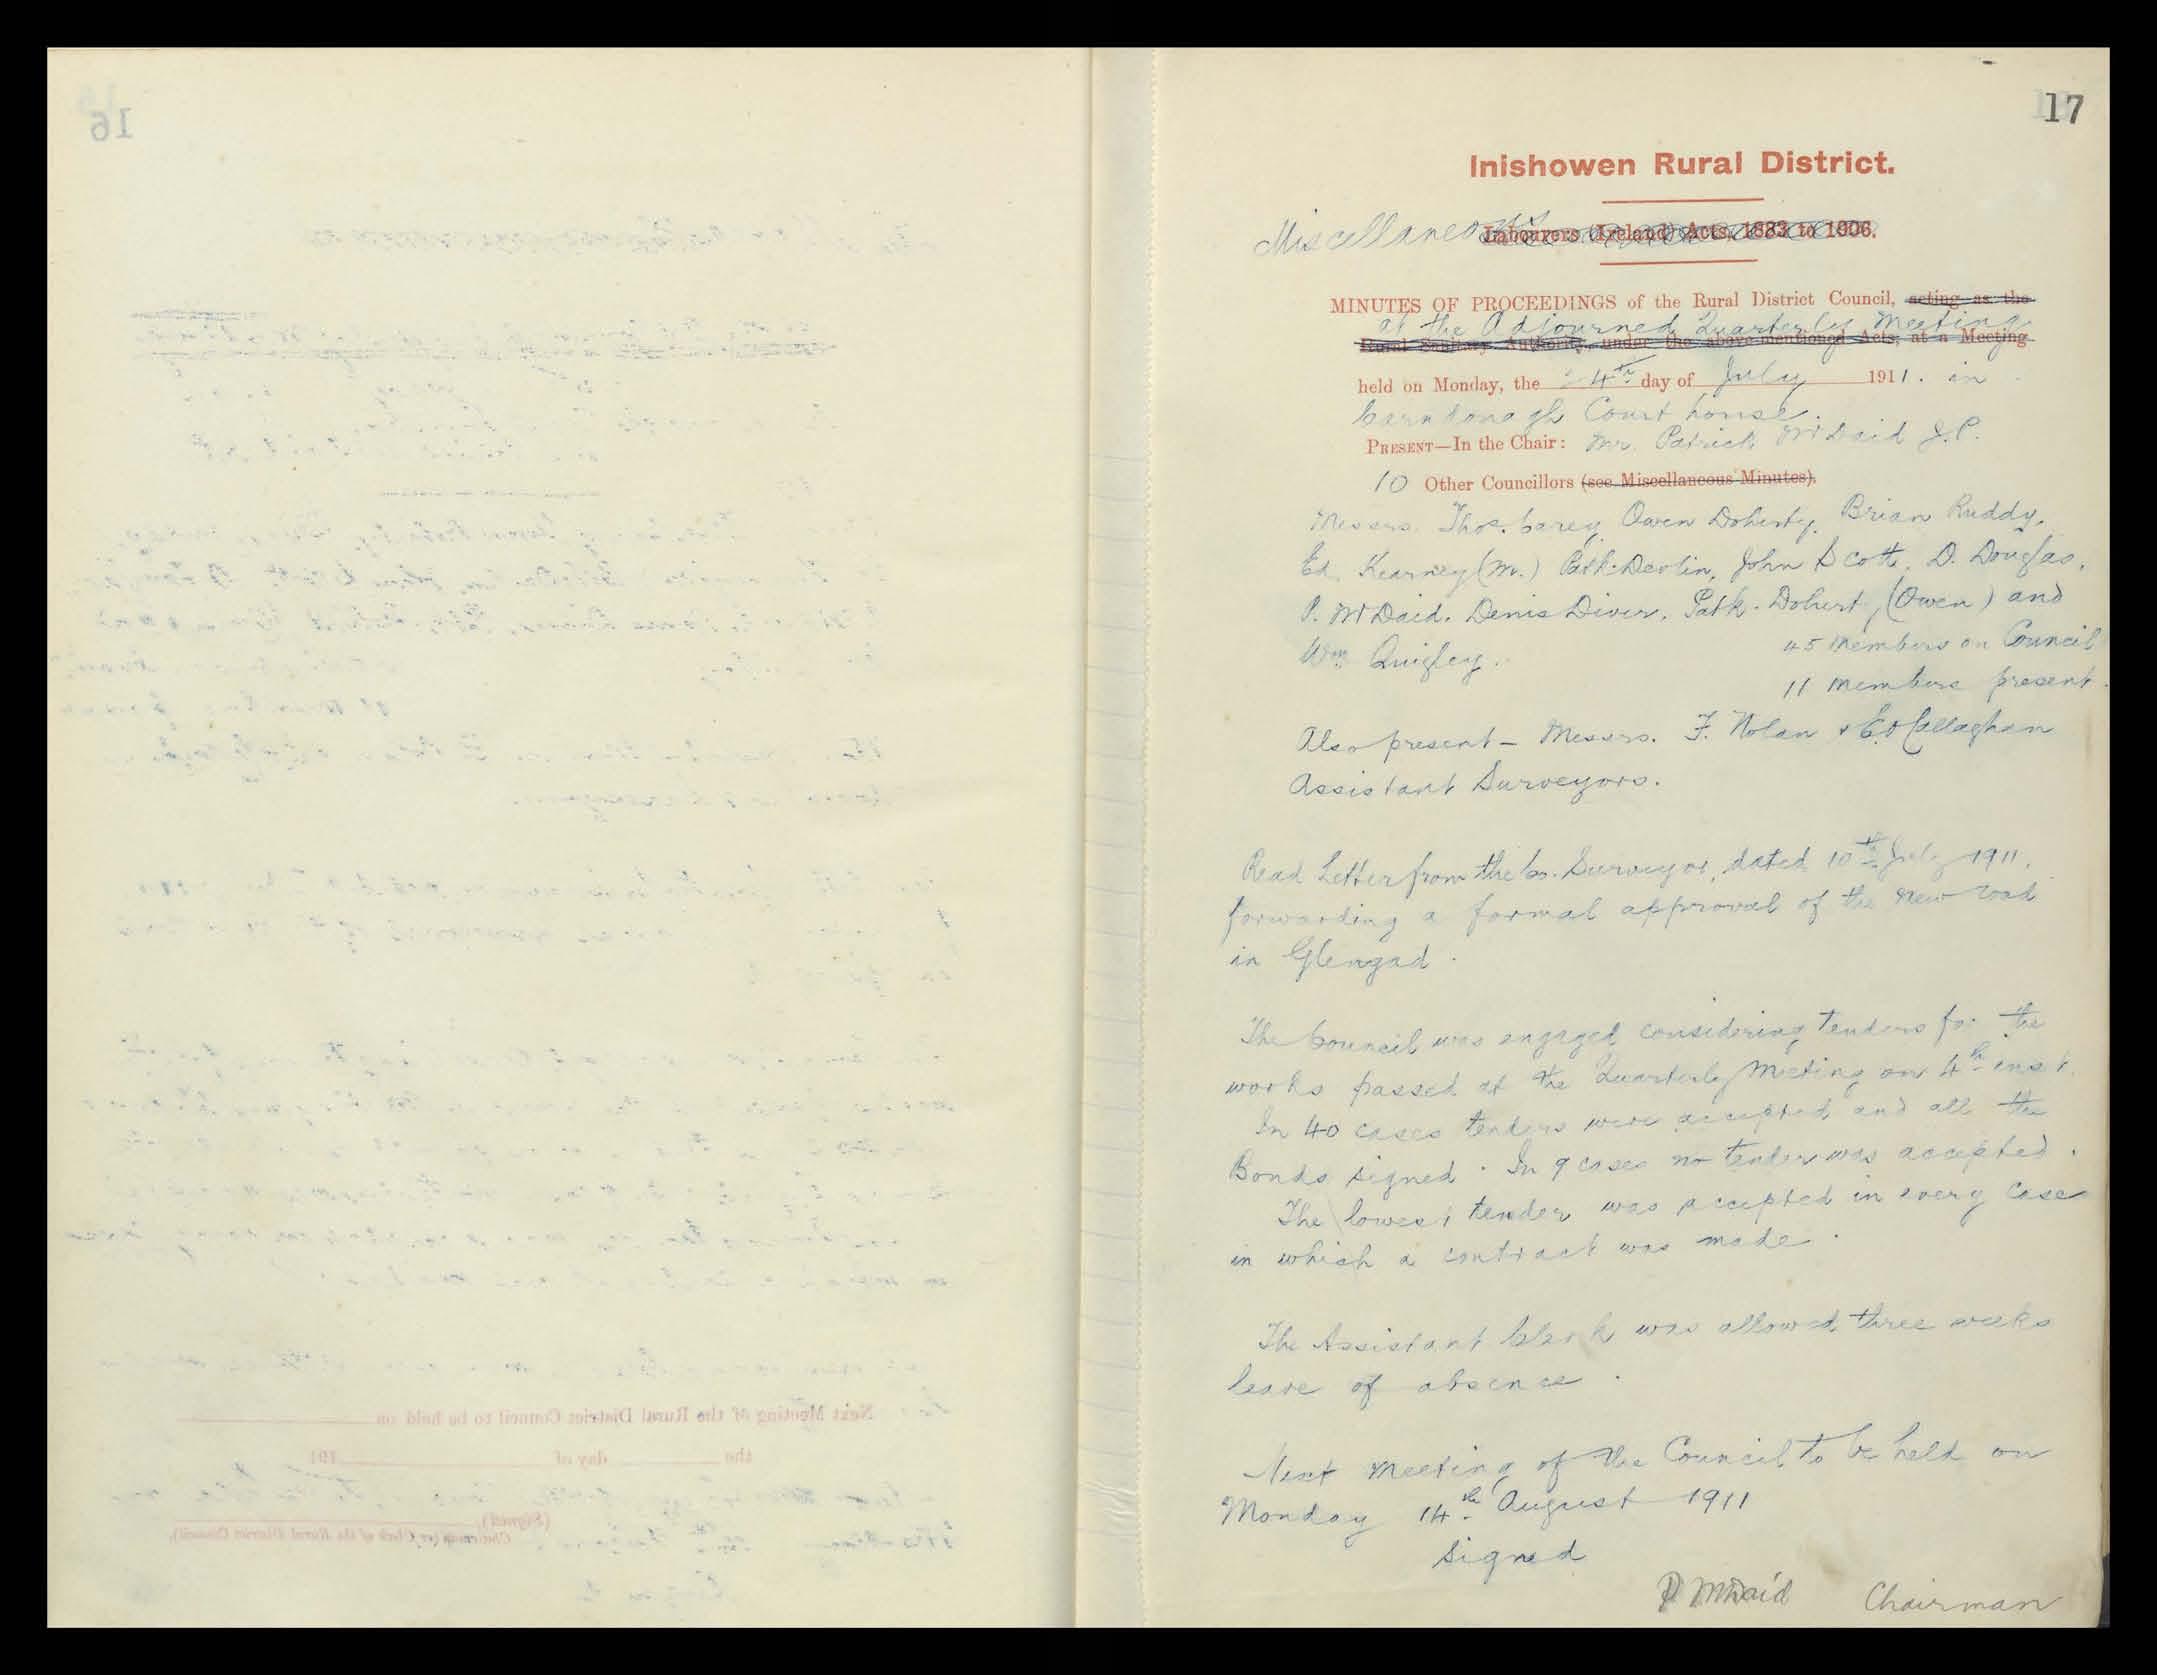 17
Inishowen Rural District.
Miscellaneous Labourers (Ireland) Acts, 1883 to 1906.
MINUTES OF PROCEEDINGS of the Rural District Council, acting as the
at the Adjourned Quarterly Meeting
Rural Sanitary Authority, under the above-mentioned Acts, at a Meeting
held on Monday, the 4th day of July 1911. in
Carndonagh Court house.
PRESENT—In the Chair: Mr. Patrick McDaid J.P.
10 Other Councillors (see Miscellaneous Minutes).
Messrs. Thos. Carey, Owen Doherty, Brian Ruddy,
Ed. Kearney (M.) Patk. Devlin, John Scott, D. Douglas,
P. McDaid. Denis Diver, Patk. Dohert, (Owen) and
Wm Quigley.
45 members on Council
11 members present.
Also present - Messrs. F. Nolan & E. O'Callaghan
Assistant Surveyors.
Read Letter from the Co. Surveyor, dated 10th July 1911.
forwarding a formal approval of the New road
in Glengad.
The Council was engaged considering tenders for the
works passed at the Quarterly Meeting on 4th inst.
In 40 cases tenders were accepted and all the
Bonds signed. In 9 cases no tender was accepted.
The lowest tender was accepted in every case
in which a contract was made.
The Assistant Clerk was allowed three weeks
leave of absence.
Next Meeting of the Council to be held on
Monday 14th August 1911
Signed
P McDaid Chairman
16
Next Meeting of the Rural District Council to be held on
the day of 191
(Signed),
Chairman (or) Clerk of the Rural District Council.